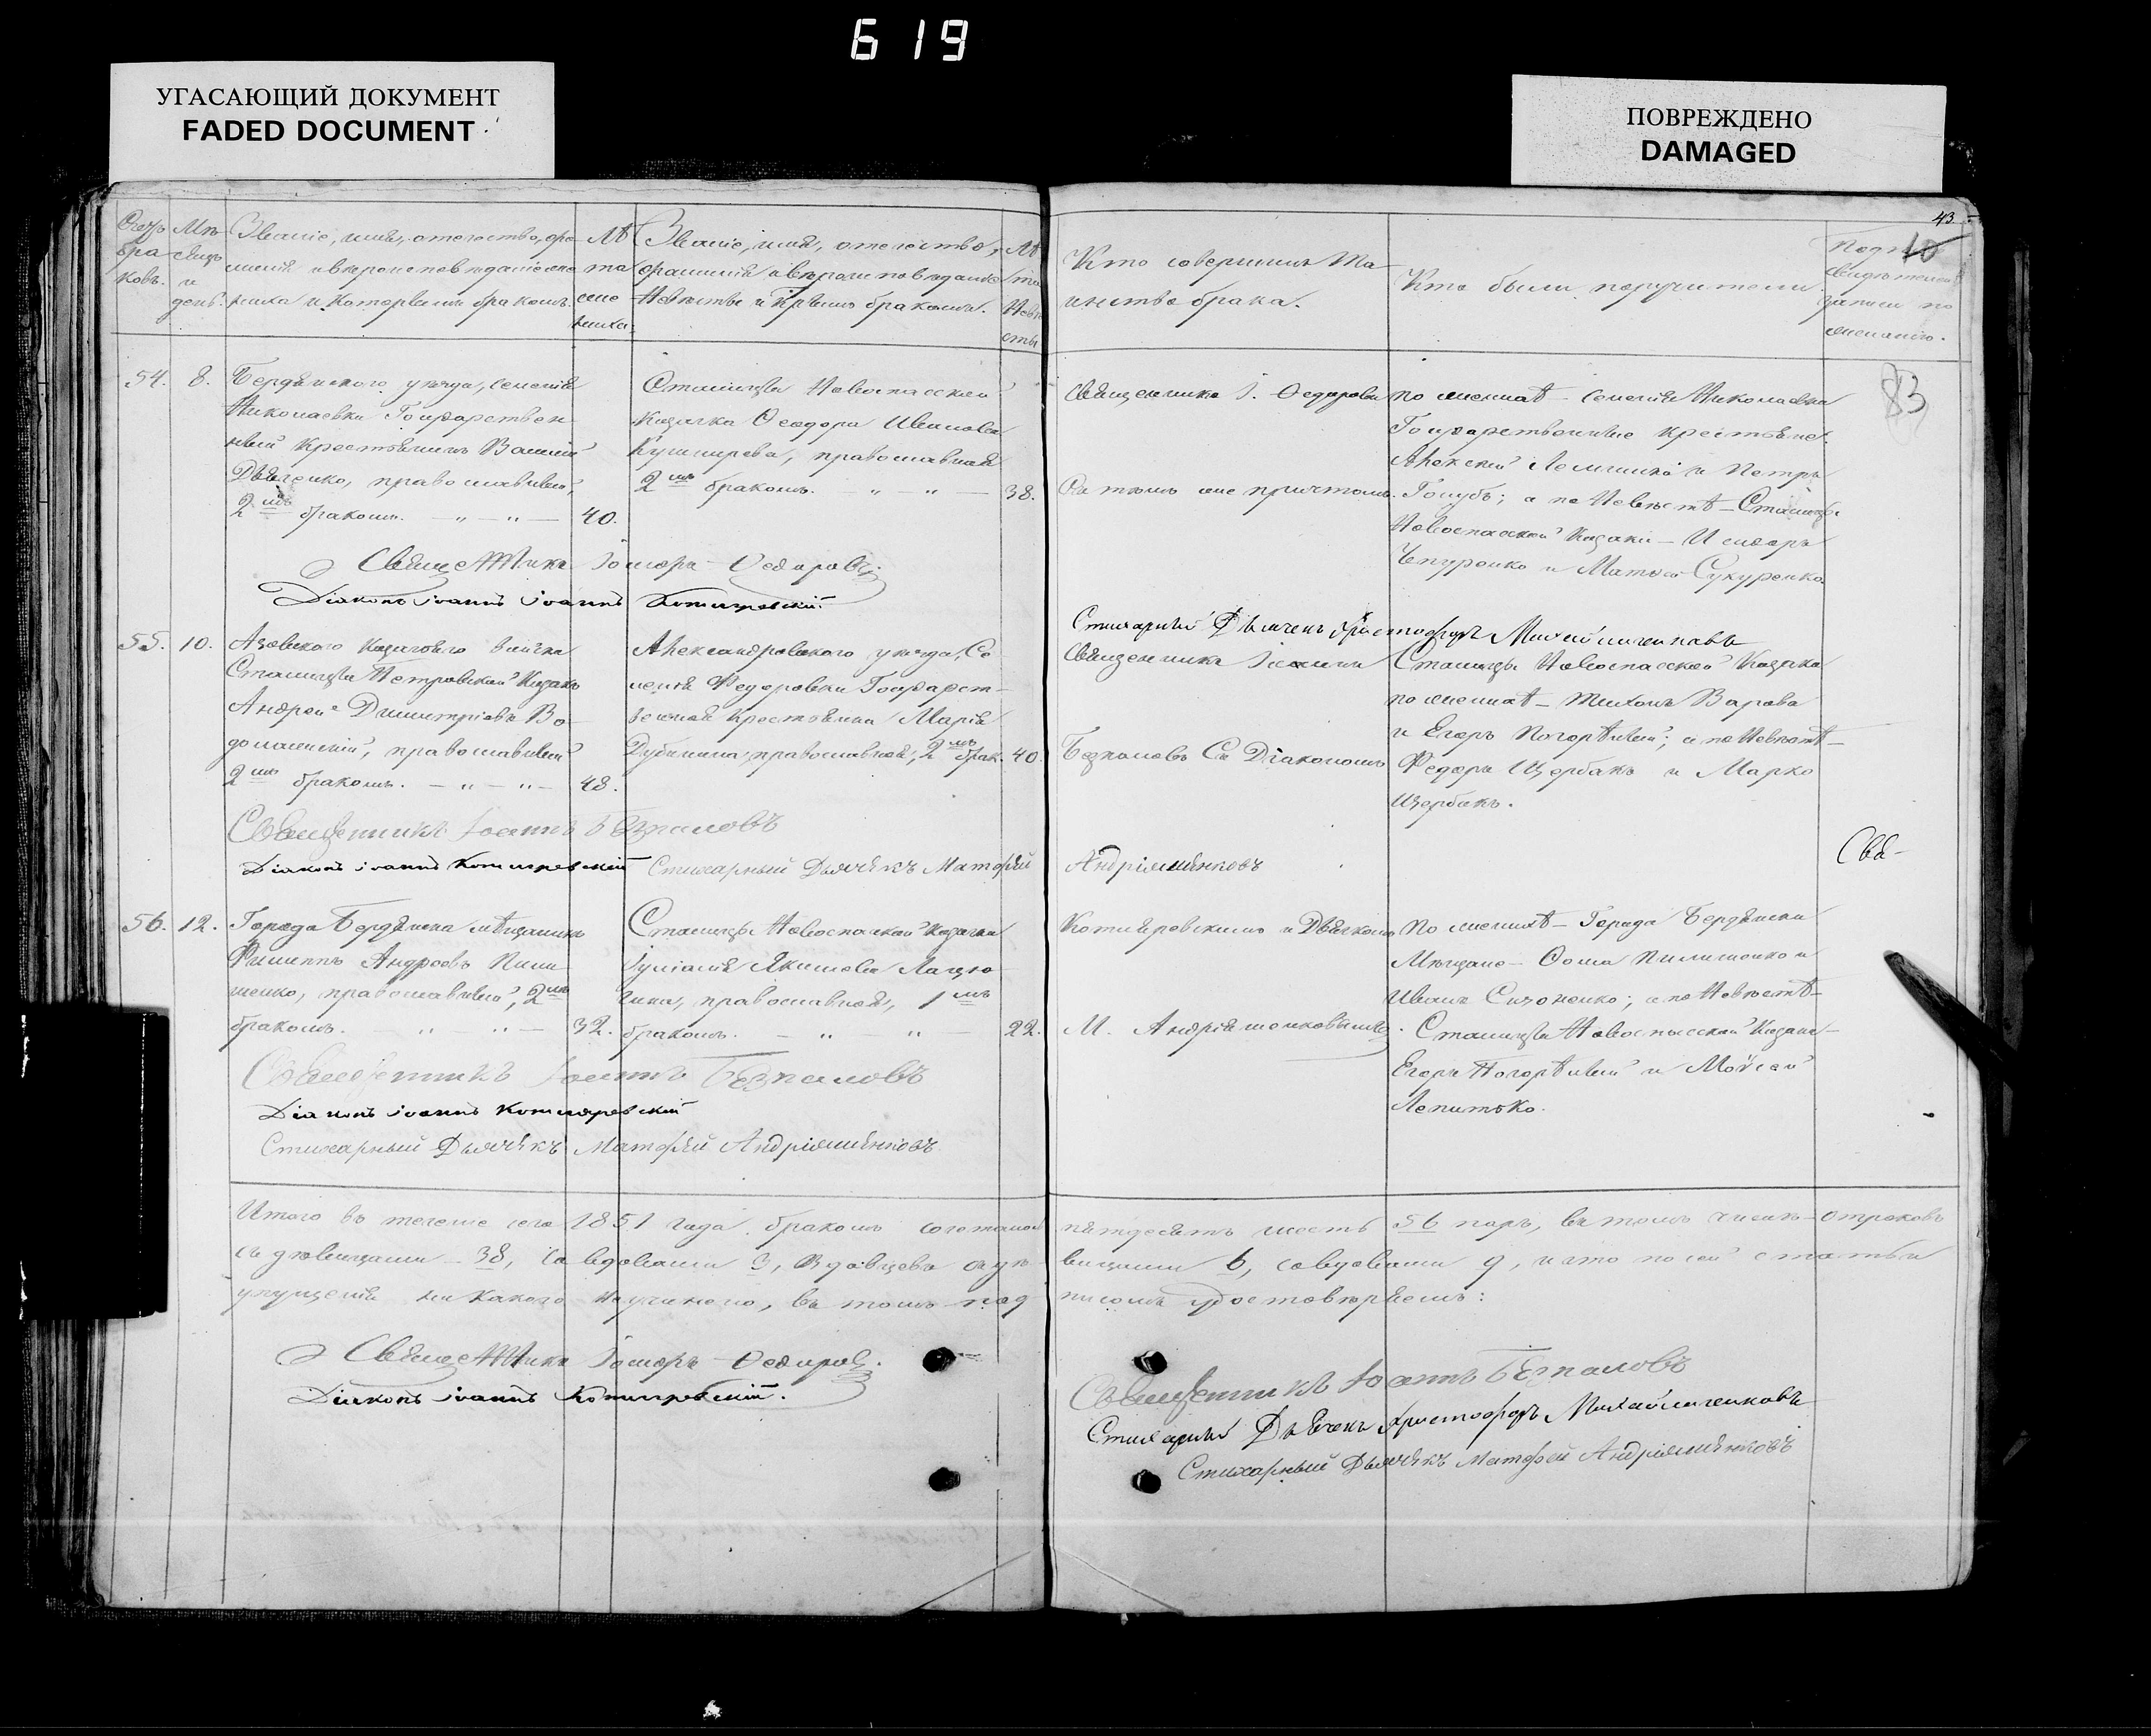 619
УГАСАЮЩИЙ ДОКУМЕНТ
FADED DOCUMENT
ПОВРЕЖДЕНО
DAMAGED
43
10
83
Счетъ бра ковъ.
Мѣ сяцъ и день.
Званіе, имя, отечество, фа
милія и вѣроисповѣданіе же
ниха и которымъ бракомъ.
Лѣ та же ниха.
Званіе, имя, отечество,
фамилія и вѣроисповѣданіе
Невѣсты и коимъ бракомъ.
Лѣ та Невѣ сты
Кто совершилъ Та
инство брака.
Кто были поручители
свидѣтелей записи по желанію.
54. 8. Бердянского уѣзда, селенія
Николаевки Государствен
ный крестьянинъ Василій
Дьяченко, православный,
2мъ бракомъ. — " — " — 40.
Станицы Новоспасской
Казачка Феодора Иванова
Кушнирева, православная
2мъ бракомъ. — " — " — 38.
Священникъ І. Федоровъ
Съ тѣмъ же причтомъ.
По женихѣ — селенія Николаевки
Государственные крестьяне
Алексей и Петръ
Голубъ; а по Невѣстѣ — Станицы
Новоспасской Казаки — Исидоръ
Чепуренко и Матвей Сукуренко
Священникъ Федоровъ.
Діаконъ іоаннъ іоаннъ Котляревскій.
Стихарный Дьячекъ Христофоръ Михайличенковъ
55. 10. Азовского Казачьяго Войска
Станицы Петровской Казакъ
Андрей Димитріевъ Во
долажскій, православный
2мъ бракомъ. — " — " — 48.
Александровского уѣзда, Се
ленія Федоровки Государст-
венная крестьянка Марія
Дубинина, православная, 2мъ брак. 40.
Священникъ Іоаннъ
Безпаловъ Съ Діакономъ
Станицы Новоспасской Казаки
по женихѣ — Тихонъ Варава
и Егоръ Погорѣлый; а по Невѣстѣ —
Федоръ Щербакъ и Марко
Щербакъ.
Священникъ Іоаннъ Безпаловъ
Діаконъ іоаннъ Котляревскій
Стихарный Дьячёкъ Матѳѣй Андріяшёнковъ
Свя-
56. 12. Города Бердянска мѣщанинъ
Филиппъ Андреевъ Пили
пенко, православный, 2мъ
бракомъ. — " — " — 32.
Станицы Новоспасской Казачка
Іуліанія Якимова
православная, 1мъ
бракомъ. — " " — 22.
Котляревскимъ и Дьячкомъ
М. Андріяшенковымъ.
По женихѣ — Города Бердянска
Мѣщане — Фома Пилипенко и
Иванъ Сизоненко; а по Невѣстѣ —
Станицы Новоспасской Казаки —
Егоръ Погорѣлый и Мойсей
Лепитько.
Священникъ Іоаннъ Безпаловъ
Діаконъ іоаннъ Котляревскій
Стихарный Дьячёкъ Матѳѣй Андріяшёнковъ
Итого въ теченіе сего 1851 года бракомъ сочеталось пятдесятъ шесть 56 паръ, въ томъ числѣ — отроковъ
съ дѣвицами — 38, со вдовами 3, Вдовцевъ съ дѣ вицами 6, со вдовами 9, и что по сей статьи
упущенія никакого неучинено, въ томъ под писомъ удостовѣряемъ:
Священникъ Федоровъ.
Діаконъ іоаннъ Котляревскій.
Священникъ Іоаннъ Безпаловъ
Стихарный Дьячекъ Христофоръ Михайличенковъ
Стихарный Дьячёкъ Матѳѣй Андріяшёнковъ